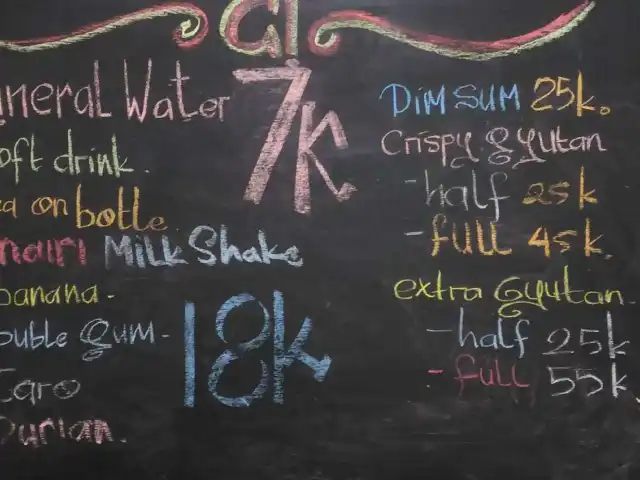 ineral Water
7k
oft drink.
ea on botle
ndiri Milk Shake
banana -
ouble gum -
18k
Taro
Durian.
Dim Sum 25k.
Crispy gyutan
- half 25k
- full 45k.
extra Gyutan.
- half 25k
- full 55k.